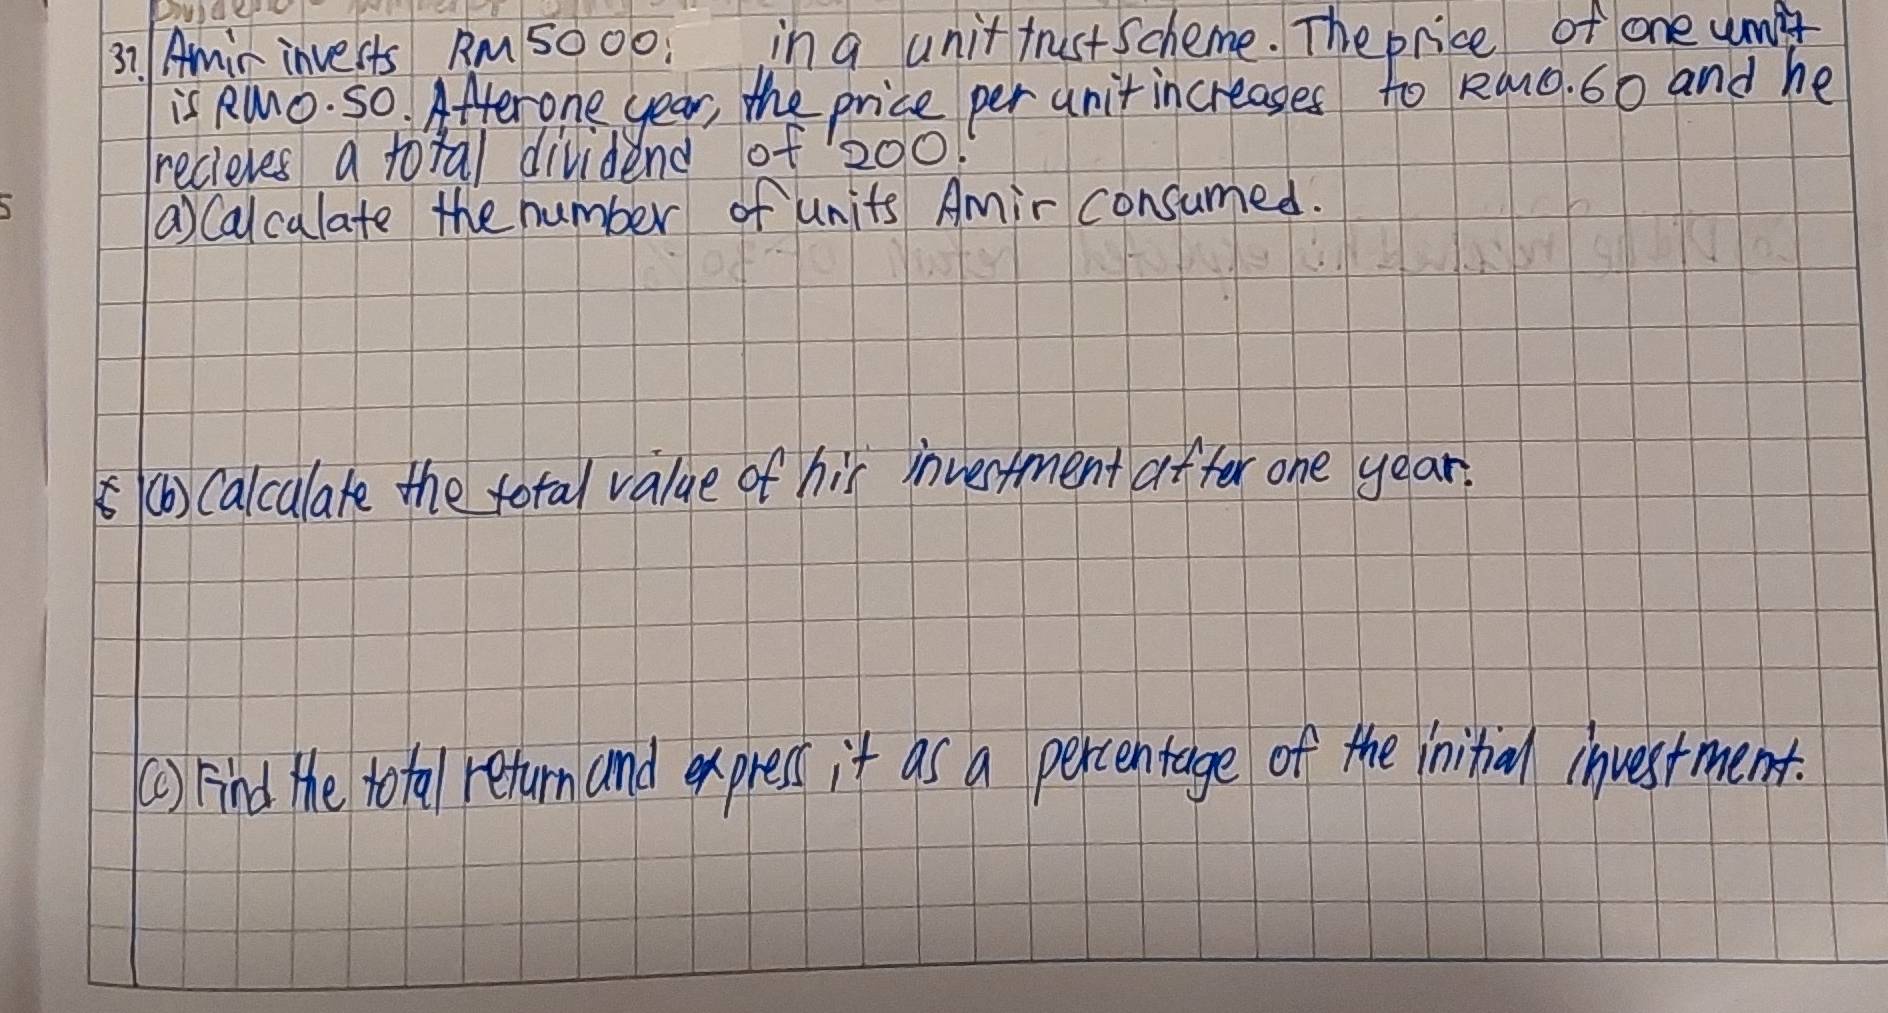 37. Amir invests RM5000. in a unit trust Scheme. The price of one unit
is RM0.50. After one year, the price per unit increases to RM0.60 and he
recieves a total dividend of 200.
a) Calculate the number of units Amir consumed.
(b) Calculate the total value of his investment after one year.
(c) Find the total return and express it as a percentage of the initial investment.